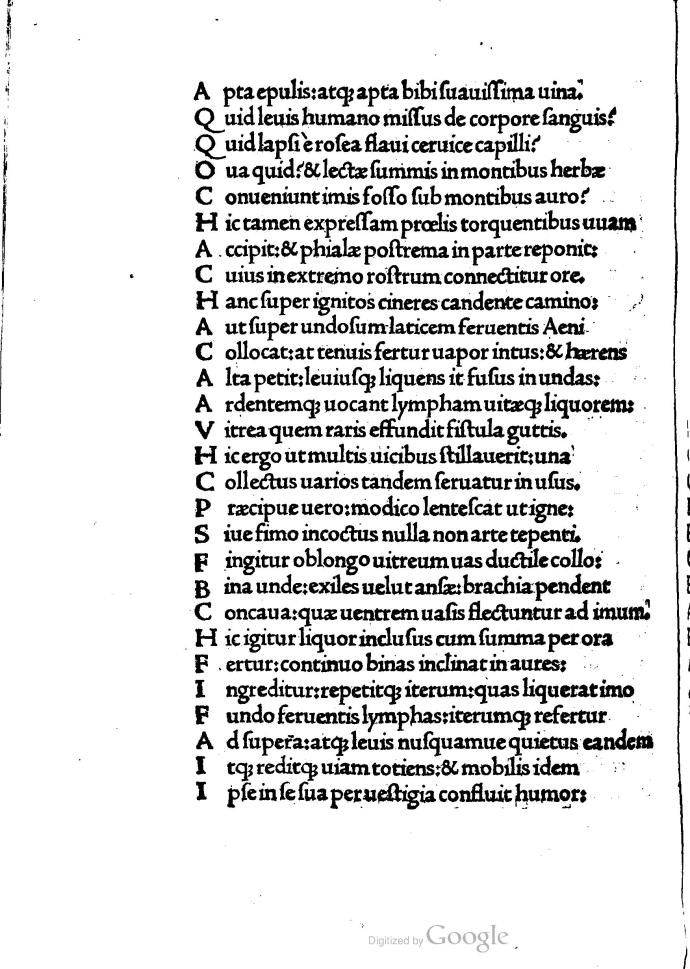 A pta epulis:atqꝫ apta bibi ſuauiſſima uina?
Q uid leuis humano miſſus de corpore ſanguis?
Q uid lapſi è roſea flaui ceruice capilli?
O ua quid?& lectæ ſummis in montibus herbæ
C onueniunt imis foſſo ſub montibus auro?
H ic tamen expreſſam prœlis torquentibus uuam
A ccipit:& phialæ poſtrema in parte reponit:
C uius in extremo roſtrum connectitur ore.
H anc ſuper ignitos cineres candente camino:
A ut ſuper undoſum laticem feruentis Aeni
C ollocat:at tenuis fertur uapor intus:& hærens
A lta petit:leuiuſqꝫ liquens it fuſus in undas:
A rdentemqꝫ uocant lympham uitæqꝫ liquorem:
V itrea quem raris effundit fiſtula guttis.
H ic ergo ut multis uicibus ſtillauerit:una
C ollectus uarios tandem ſeruatur in uſus.
P ræcipue uero:modico lenteſcat ut igne:
S iue fimo incoctus nulla non arte tepenti.
F ingitur oblongo uitreum uas ductile collo:
B ina unde:exiles uelut anſæ:brachia pendent
C oncaua:quæ uentrem uaſis flectuntur ad imum.
H ic igitur liquor incluſus cum ſumma per ora
F ertur:continuo binas inclinat in aures:
I ngreditur:repetitqꝫ iterum:quas liquerat imo
F undo feruentis lymphas:iterumqꝫ refertur
A d ſupera:atqꝫ leuis nuſquamue quietus eandem
I tqꝫ reditqꝫ uiam totiens:& mobilis idem
I pſe in ſe ſua per ueſtigia confluit humor:
Digitized by Google